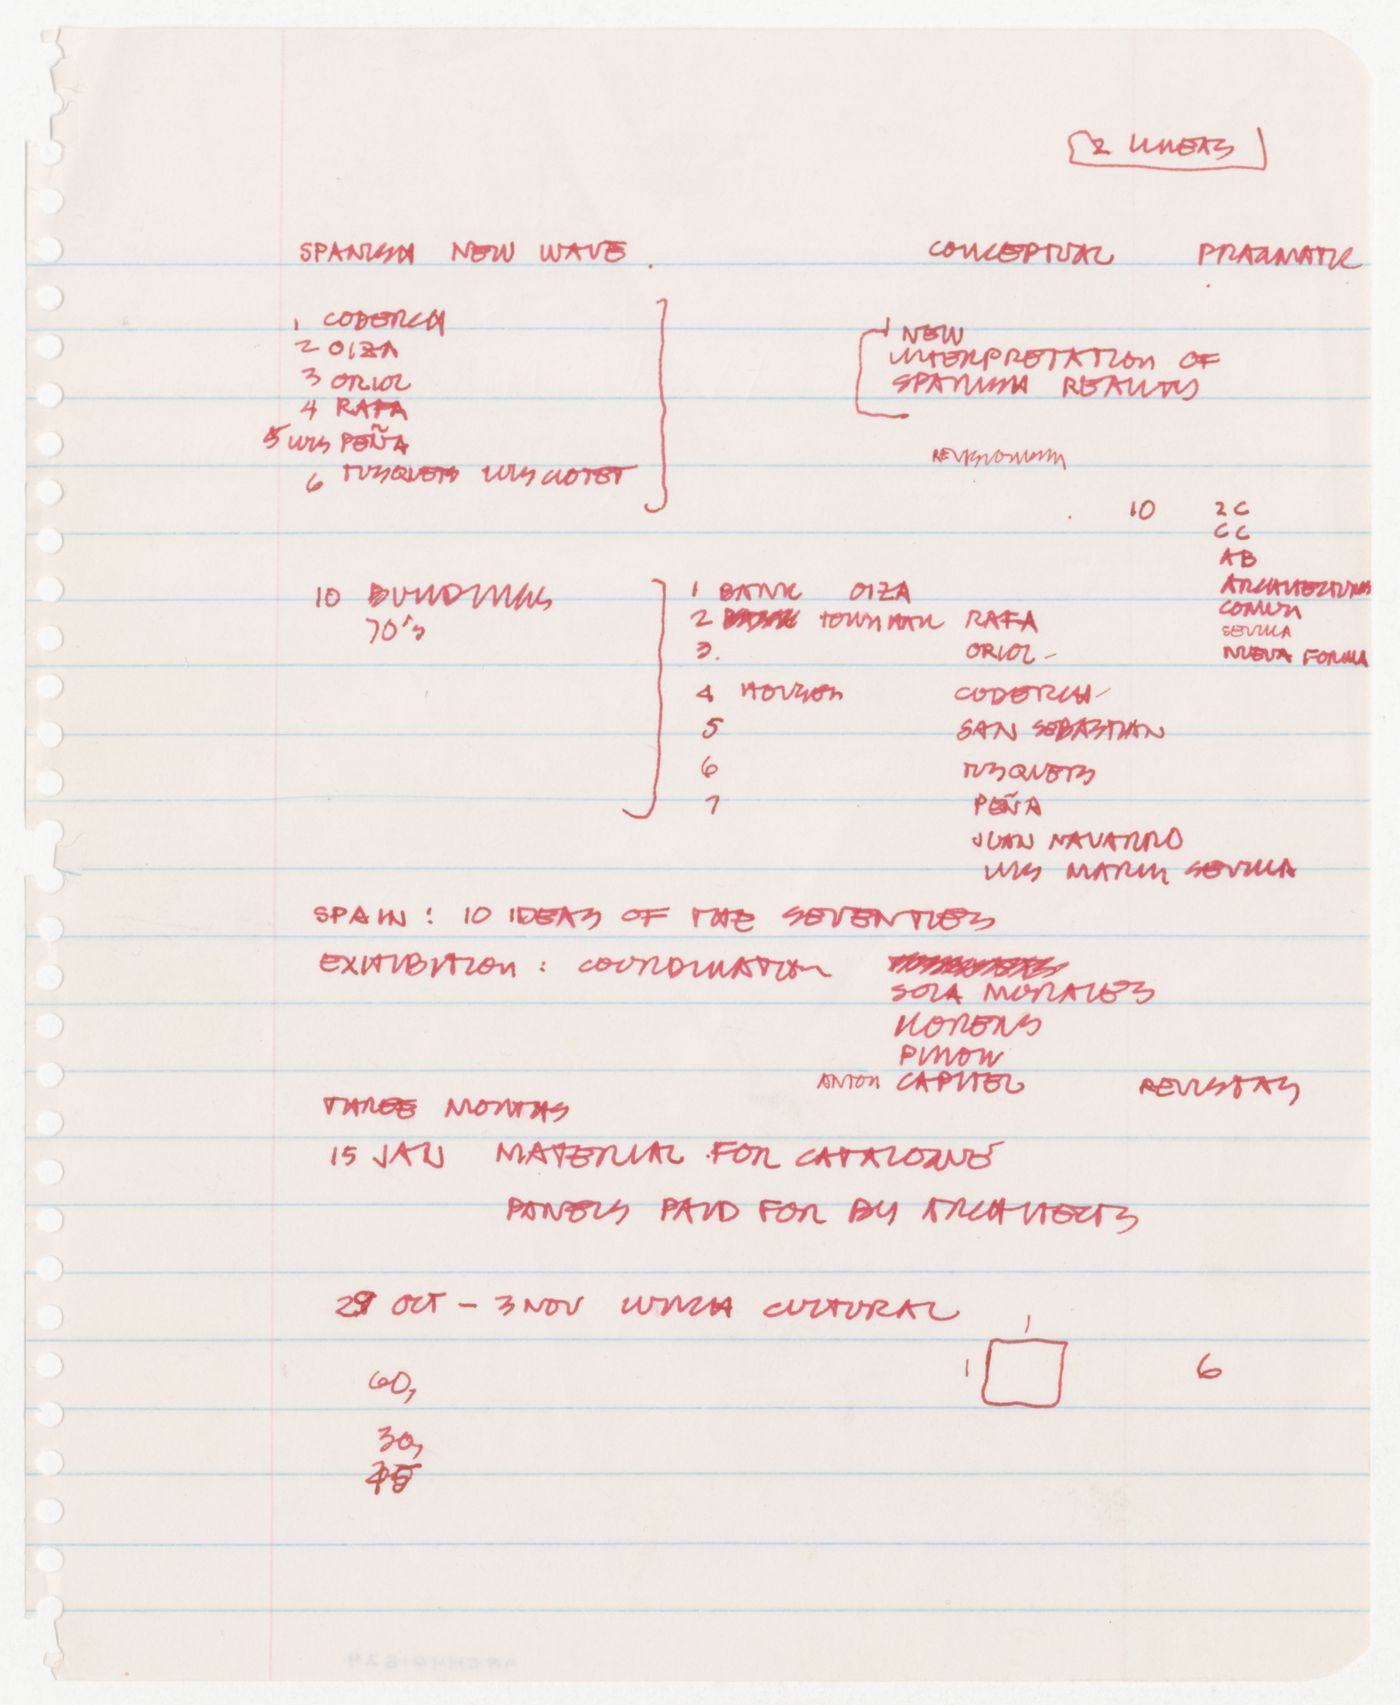 2 LINEAS
SPANISH NEW WAVE.
CONCEPTUAL PRAGMATIC
1 CODERCH
2 OIZA
3 ORIOL
4 RAFA
5 LUIS PEÑA
6 TUSQUETS LUIS CLOTET
1 NEW
INTERPRETATION OF
SPANISH REALITIES
REVISIONISM
10 2C
CC
AB
ARCHITECTURAS
COMUN
SEVILLA
NUEVA FORMA
10 BUILDINGS
70'S
1 BANK OIZA
2 TOWN HALL RAFA
3. ORIOL -
4 HOUSES CODERCH -
5 SAN SEBASTIAN
6 TUSQUETS
7 PEÑA
JUAN NAVARRO
LUIS MARIN SEVILLA
SPAIN: 10 IDEAS OF THE SEVENTIES
EXHIBITION: COORDINATION
SOLA MORALES
LLORENS
PIÑON
ANTON CAPITEL REVISTAS
THREE MONTHS
15 JAN MATERIAL FOR CATALOGUE
PANELS PAID FOR BY ARCHITECTS
29 OCT - 3 NOV LUNCH CULTURAL
1
1 6
60,
30,